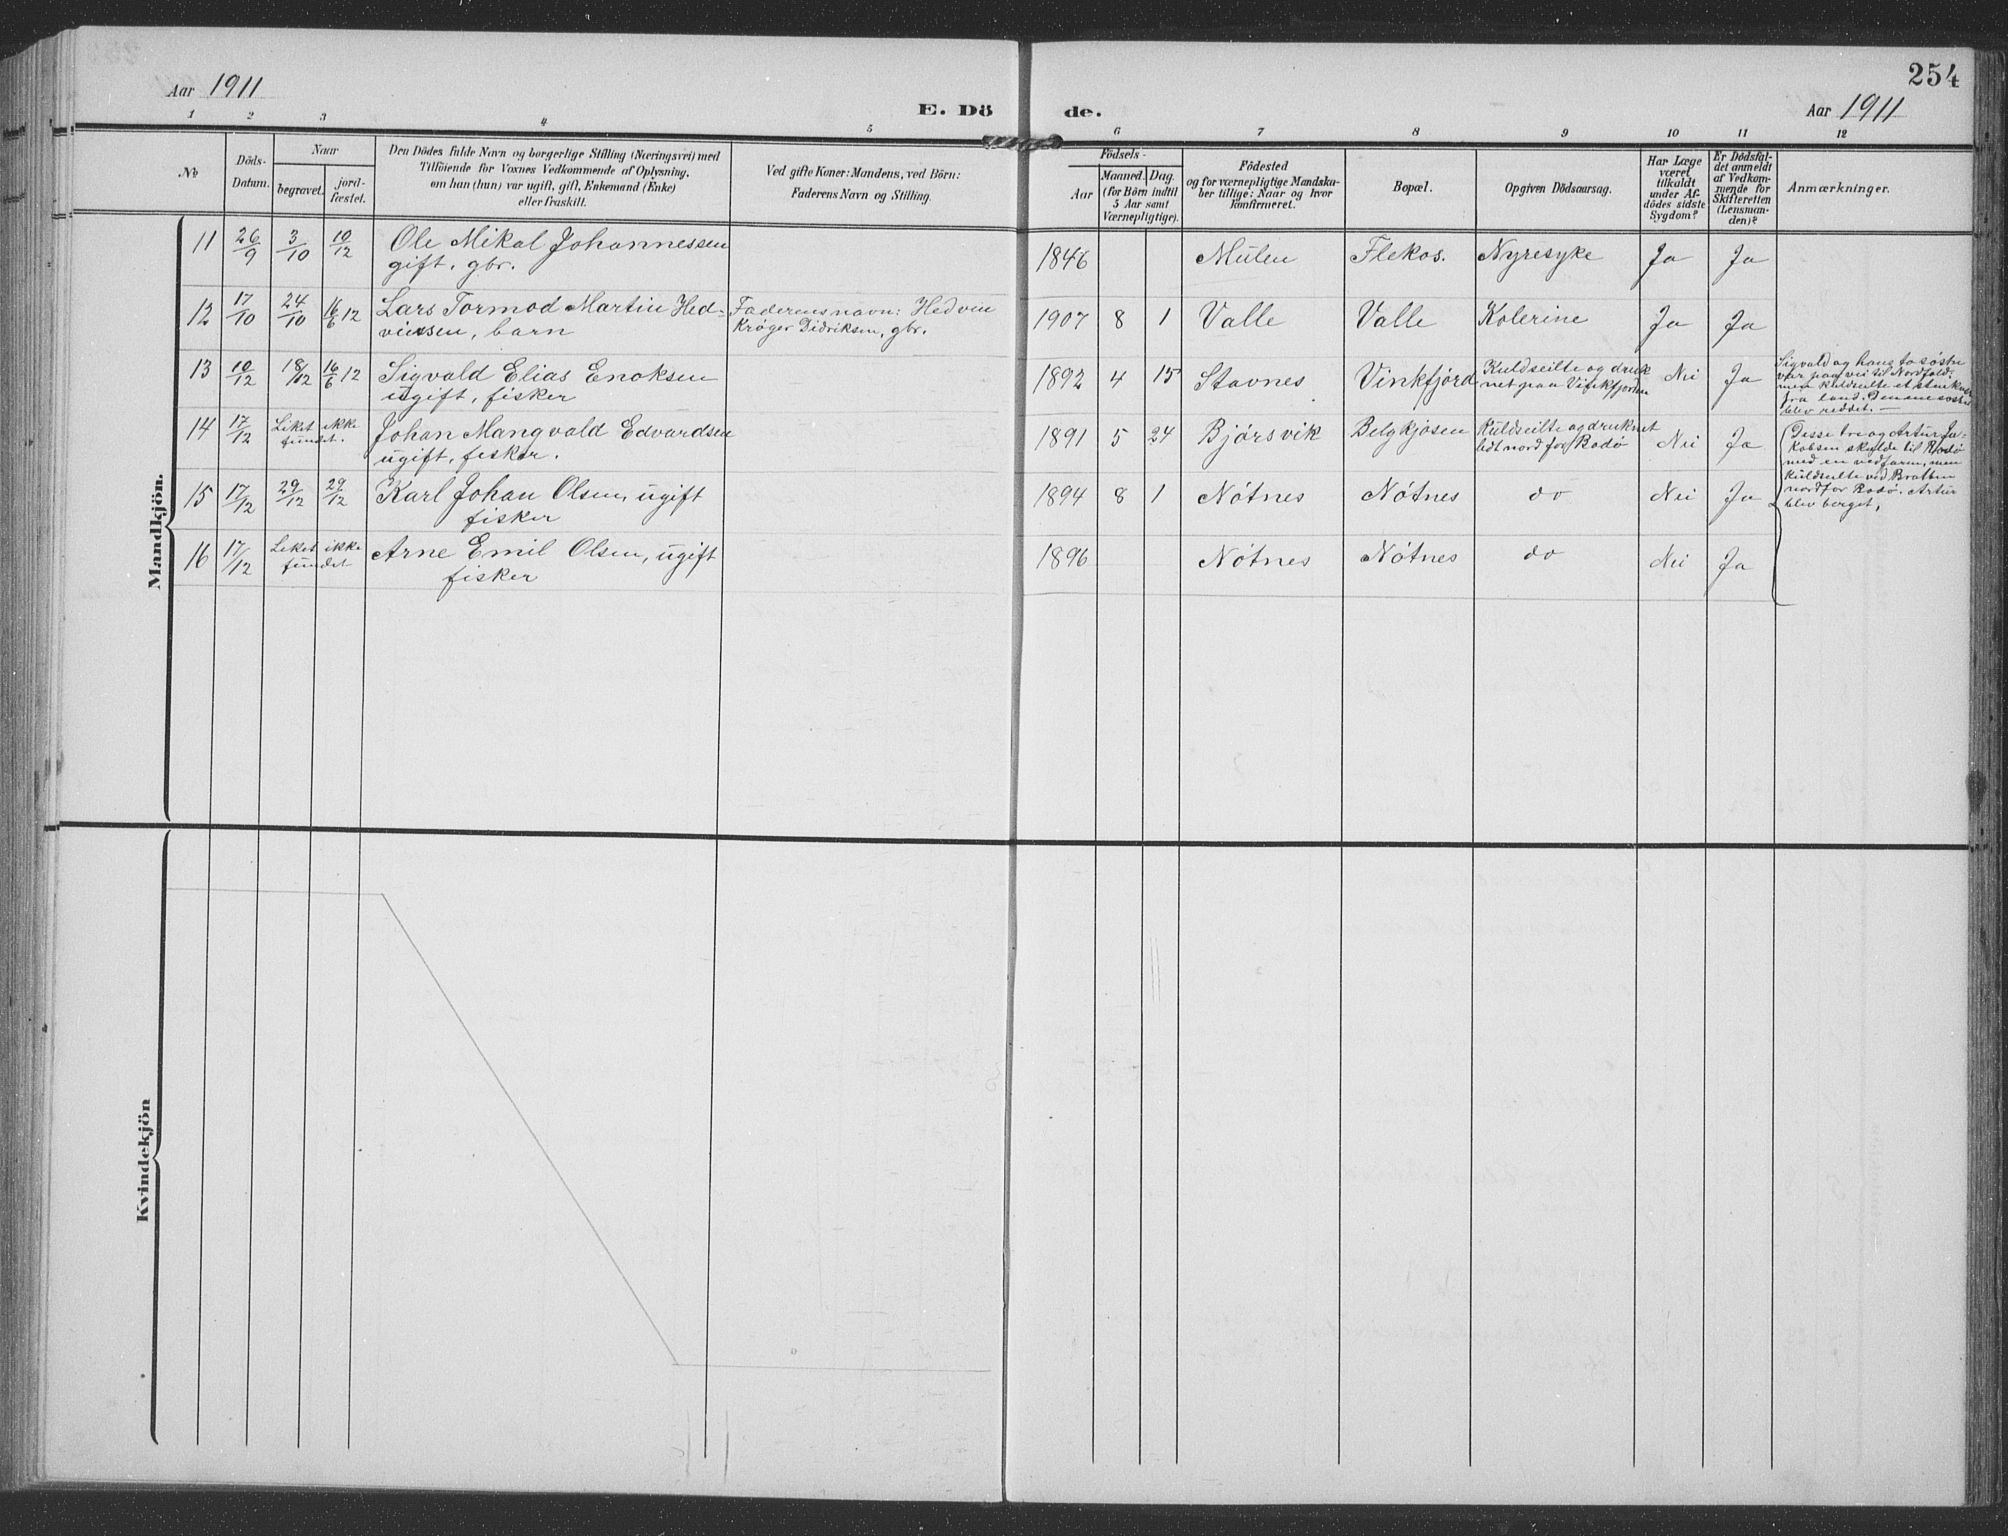 254
Aar 1911
E. Dö de.
Aar 1911
1 2 3 4 5 6 7 8 9 10 11 12
No
Döds-
Datum.
Naar
begravet.
jord-
fæstet.
Den Dödes fulde Navn og borgerlige Stilling (Næringsvei) med
Tilföiende for Voxnes Vedkommende af Oplysning,
om han (hun) var ugift, gift, Enkemand (Enke)
eller fraskilt.
Ved gifte Koner: Mandens, ved Börn:
Faderens Navn og Stilling.
Födsels-
Aar
Maaned. Dag.
(for Börn indtil
5 Aar samt
Værnepligtige).
Födested
og for værnepligtige Mandska-
ber tillige: Naar og hvor
konfirmeret.
Bopæl.
Opgiven Dödsaarsag.
Har Læge
været
tilkaldt
under Af-
dödes sidste
Sygdom?
Er Dödsfal-
det anmeldt
af Vedkom-
mende for
Skifteretten
(Lensman-
den)?
Anmærkninger.
Mandkjön.
11 26/9 3/10 10/12 Ole Mikal Johannessen
gift. gbr.
1846 Mulen Flekos. Nyresyke Ja Ja
12 17/10 24/10 16/6 12 Lars Tormod Martin Hed-
vinsen, barn
Faderens navn: Hedvin
Krøger Didriksen, gbr.
1907 8 1 Valle Valle Kolerine Ja Ja
13 10/12 18/12 16/6 12 Sigvald Elias Enoksen
ugift, fisker
1892 4 15 Stavnes Vinkfjord Kuldseilte og druk
net paa Vinkfjorden
Nei Ja
Sigvald og hans to søstre
var paa vei til Nordfold.
men kuldseilte et
fra land. Denene søster
blev reddet. —
14 17/12 Liket ikke
fundet.
Johan Mangvald Edvardsen
ugift, fisker.
1891 5 24 Bjørsvik Belgkjosen Kuldseilte og druknet
lidt nord for Bodø
Nei Ja
Disse tre og Artur Ja-
kobsen skulde til Bodø
med en vedfarm, men
kuldseilte ved Bratten
nordfor Bodø. Artur
blev berget.
15 17/12 29/12 29/12 Karl Johan Olsen, ugift
fisker
1894 8 1 Nötnes Nötnes do Nei Ja
16 17/12 Liket ikke
fundet
Arne Emil Olsen, ugift
fisker
1896 Nötnes Nötnes do Nei Ja
Kvindekjön